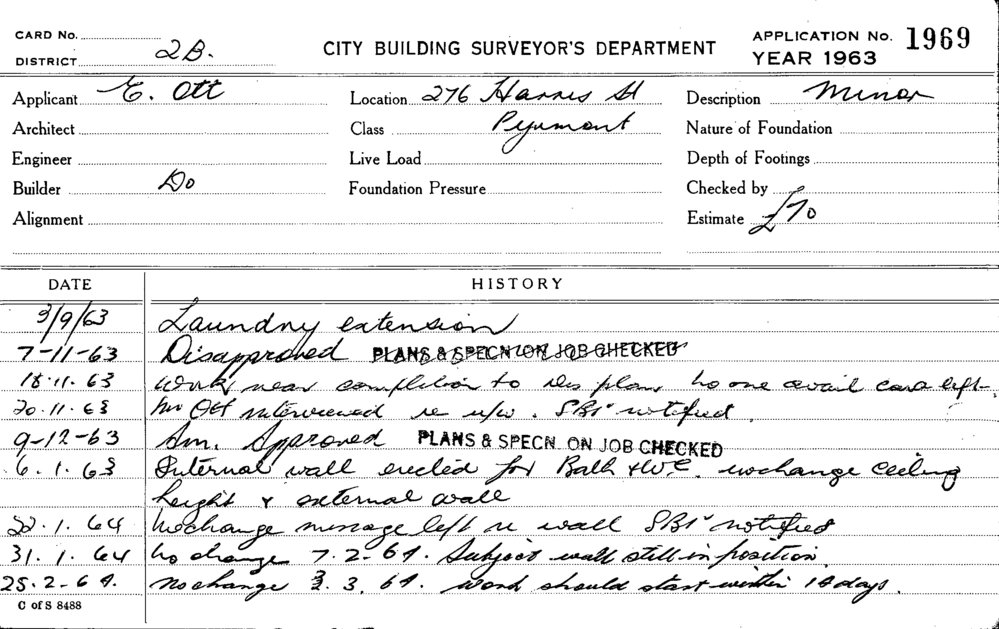 CARD No.
DISTRICT 2B.
CITY BUILDING SURVEYOR'S DEPARTMENT
APPLICATION No. 1969
YEAR 1963
Applicant E. Ott
Location 276 Harris St
Description Minor
Architect
Class Pyrmont
Nature of Foundation
Engineer
Live Load
Depth of Footings
Builder Do
Foundation Pressure
Checked by
Alignment
Estimate £70
DATE HISTORY
3/9/63 Laundry extension
7-11-63 Disapproved PLANS & SPECN ON JOB CHECKED
18.11.63 Work near completion to dis plan no one avail card left.
20.11.63 Mr Ott interviewed re u/w. SBI notified
9-12-63 Am. Approved PLANS & SPECN. ON JOB CHECKED
6.1.63 Internal wall erected for Bath & WC. nochange ceiling
height & external wall
22.1.64 Nochange message left re wall SBI notified
31.1.64 No change 7.2.64. Subject wall still in position.
25.2.64. No change 3.3.64. work should start within 14 days.
C of S 8488